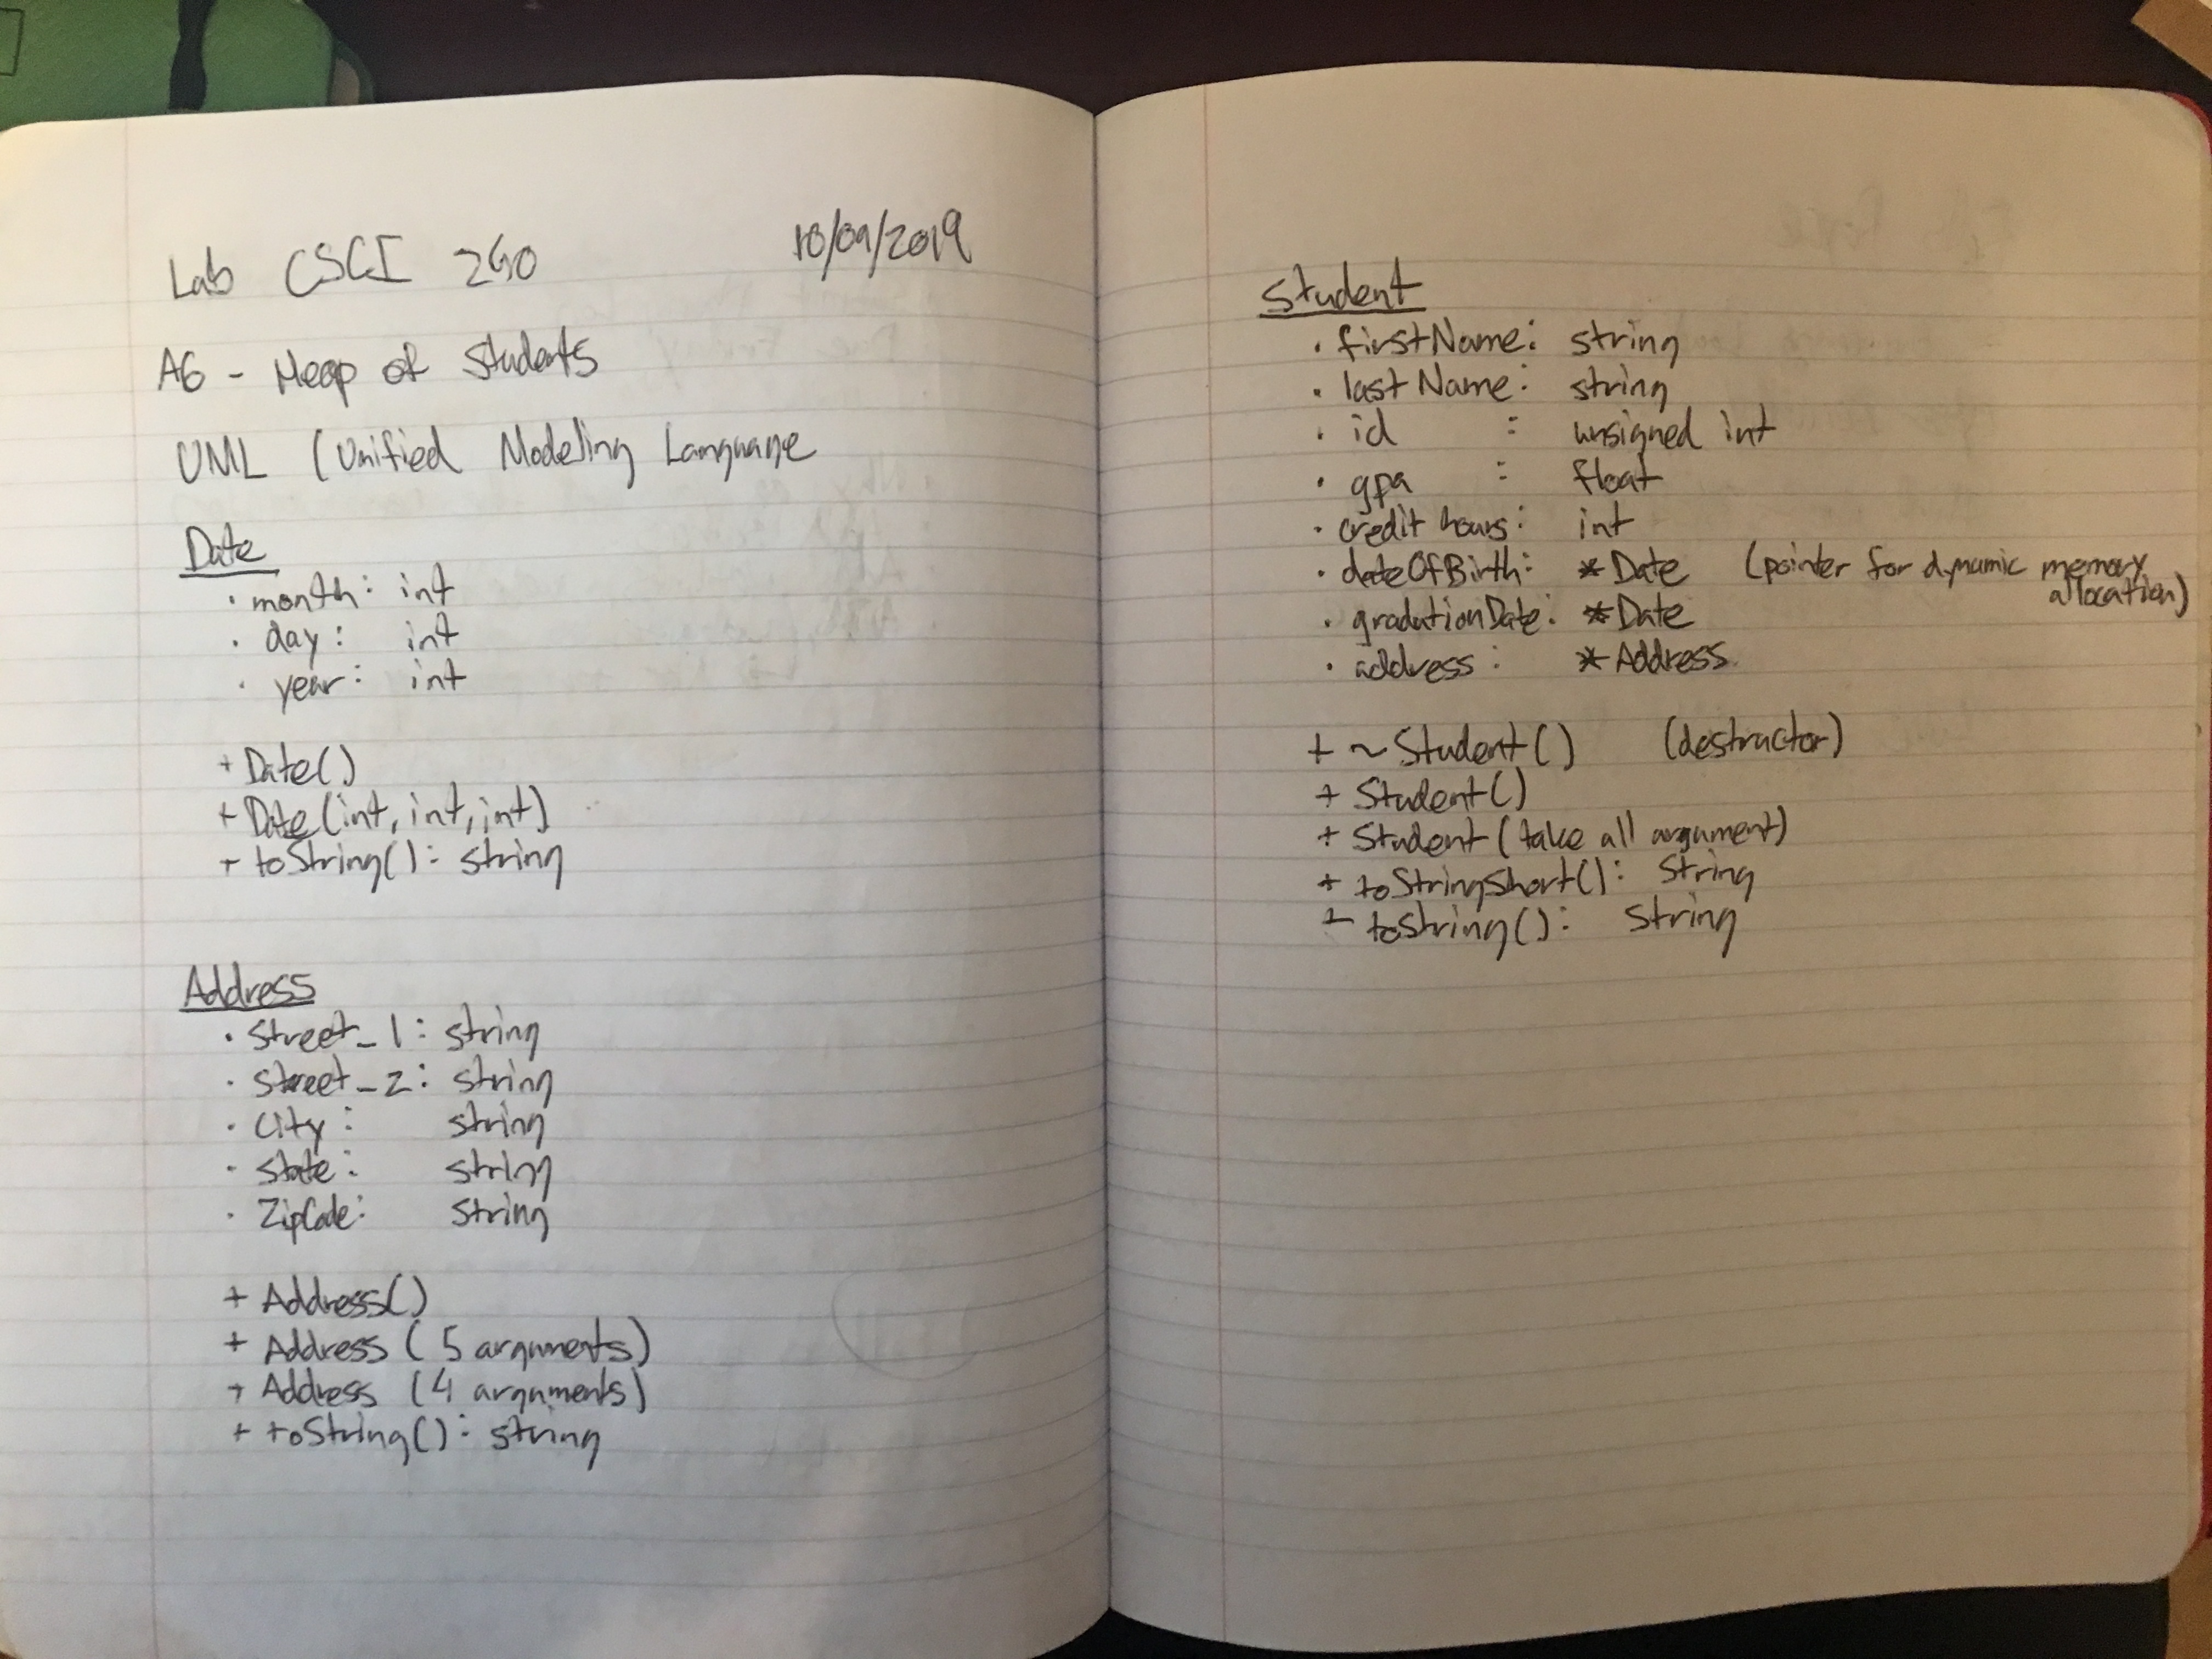 Lab CSCI 260
10/09/2019
A6 - Heap of Students
UML (Unified Modeling Language
Date
· month: int
· day: int
· year: int
+ Date()
+ Date(int, int, int)
+ toString(): string
Address
· Street_1: string
· Street_2: string
· City: string
· State: string
· ZipCode: string
+ Address()
+ Address (5 arguments)
+ Address (4 arguments)
+ toString(): string
Student
· firstName: string
· lastName: string
· id : unsigned int
· gpa : float
· credit hours: int
· dateOfBirth: *Date (pointer for dynamic memory
allocation)
· gradutionDate: *Date
· address: *Address
+ ~Student() (destructor)
+ Student()
+ Student(take all argument)
+ toStringShort(): String
+ toString(): String